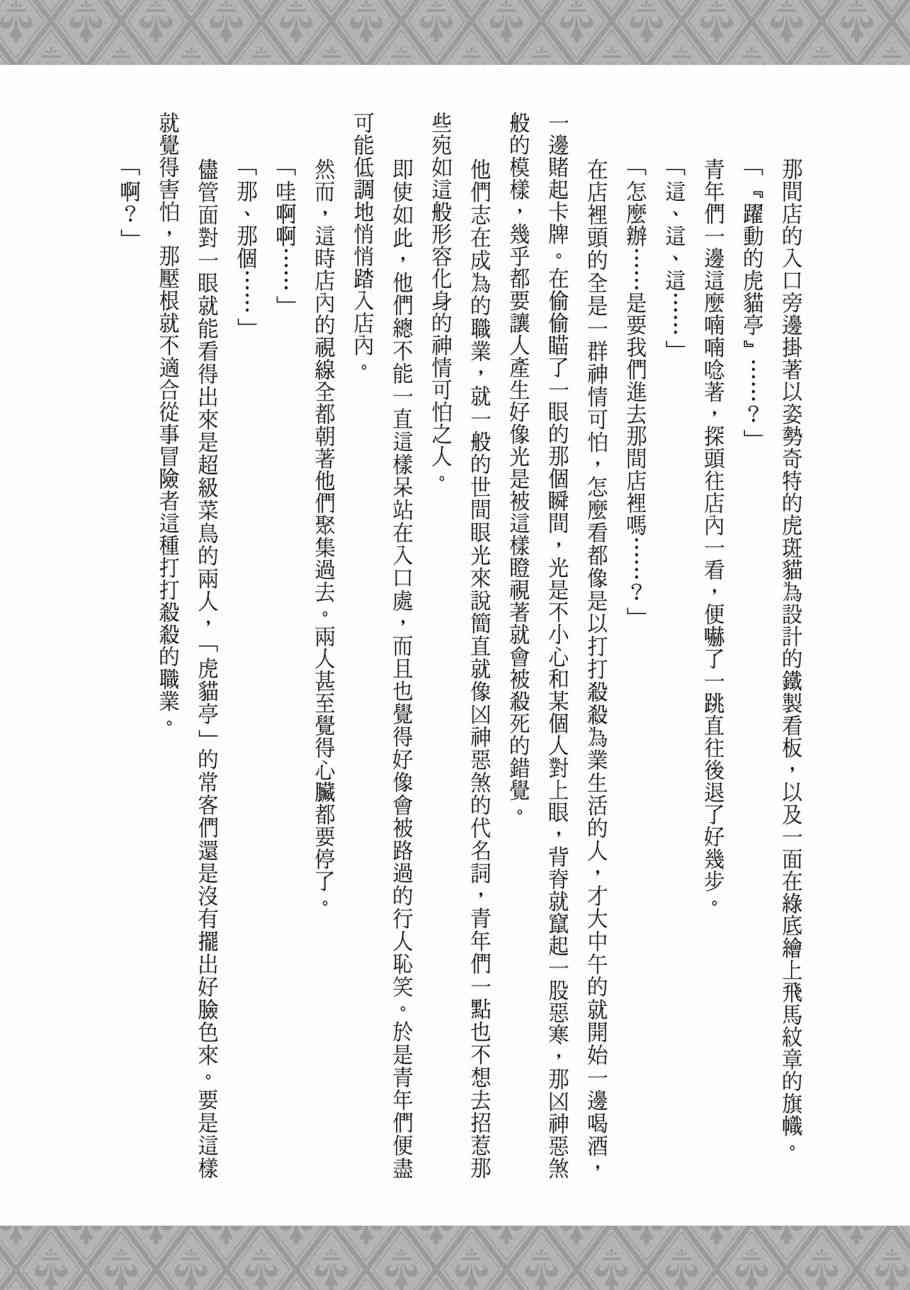 那間店的入口旁邊掛著以姿勢奇特的虎斑貓為設計的鐵製看板，以及一面在綠底繪上飛馬紋章的旗幟。
「『躍動的虎貓亭』……？」
青年們一邊這麼喃喃唸著，探頭往店內一看，便嚇了一跳直往後退了好幾步。
「這、這、這……」
「怎麼辦……是要我們進去那間店裡嗎……？」
在店裡頭的全是一群神情可怕，怎麼看都像是以打打殺殺為業生活的人，才大中午的就開始一邊喝酒，
一邊賭起卡牌。在偷偷瞄了一眼的那個瞬間，光是不小心和某個人對上眼，背脊就竄起一股惡寒，那凶神惡煞
般的模樣，幾乎都要讓人產生好像光是被這樣瞪視著就會被殺死的錯覺。
他們志在成為的職業，就一般的世間眼光來說簡直就像凶神惡煞的代名詞，青年們一點也不想去招惹那
些宛如這般形容化身的神情可怕之人。
即使如此，他們總不能一直這樣呆站在入口處，而且也覺得好像會被路過的行人恥笑。於是青年們便盡
可能低調地悄悄踏入店內。
然而，這時店內的視線全都朝著他們聚集過去。兩人甚至覺得心臟都要停了。
「哇啊啊……」
「那、那個……」
儘管面對一眼就能看得出來是超級菜鳥的兩人，「虎貓亭」的常客們還是沒有擺出好臉色來。要是這樣
就覺得害怕，那壓根就不適合從事冒險者這種打打殺殺的職業。
「啊？」